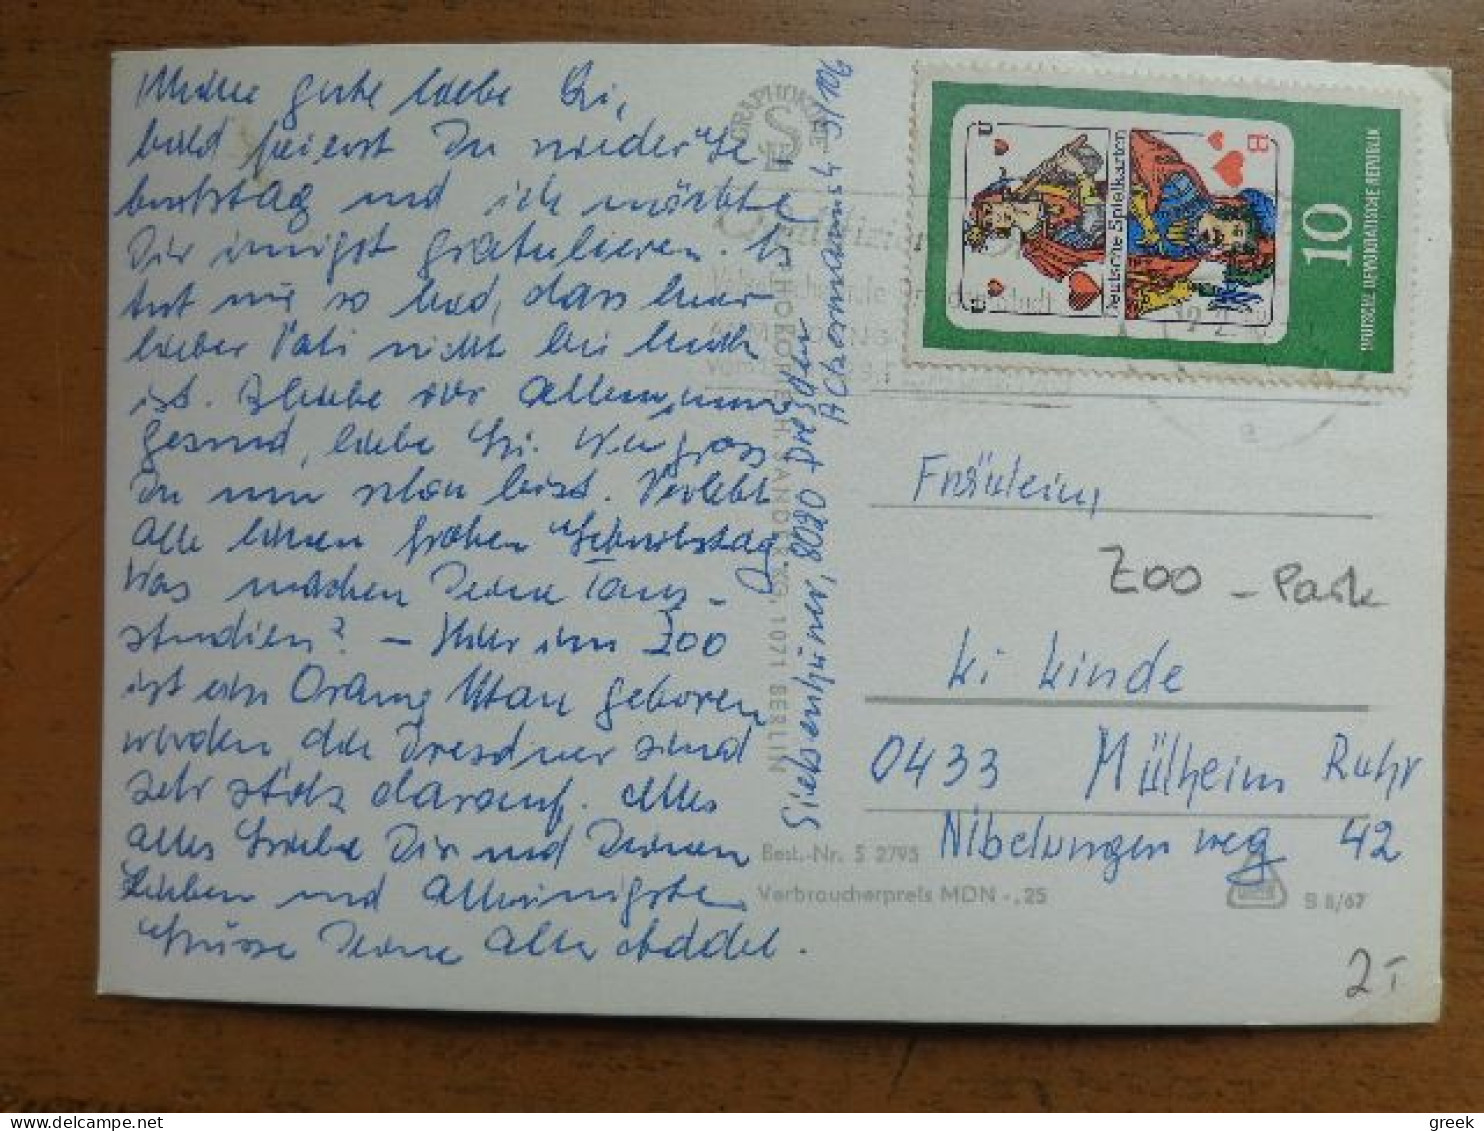 Meine gute liebe Ki,
bald feierst Du wieder Ge-
burtstag und ich möchte
Dir innigst gratulieren. Es
tut mir so leid, dass Euer
lieber Vati nicht bei Euch
ist. Bleibe vor Allem immer
gesund, liebe Ki. Wie gross
Du nun schon bist. Verlebt
Alle einen frohen Geburtstag
Was machen Deine Tanz-
studien? - Hier im Zoo
ist ein Orang Utan geboren
worden, die Dresdner sind
sehr stolz darauf. Alles
alles Liebe Dir und Deinen
Lieben und allerinnigste
Grüsse Deine alte
8020 Dresden
Ackermannstr.
GRAPHOKOPIE H. SANDER KG, 1071 BERLIN
Best.-Nr. S 2795
Verbraucherpreis MDN -,25
B 8/67
U
U
B
Deutsche Spielkarten
10
DEUTSCHE DEMOKRATISCHE REPUBLIK
Fräulein,
Zoo - Park
Ki Kinde
0433 Mülheim Ruhr
Nibelungenweg 42
2-